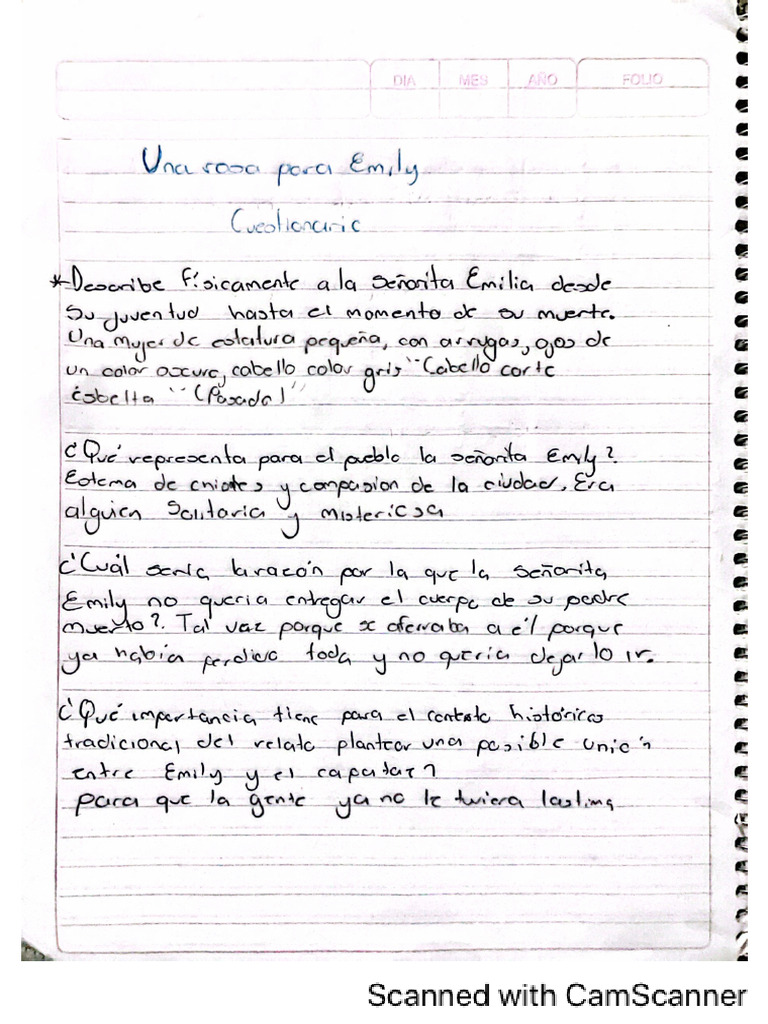 DIA MES AÑO FOLIO
Una rosa para Emily
Cuestionario
*Describe físicamente a la señorita Emilia desde
su juventud hasta el momento de su muerte.
Una mujer de estatura pequeña, con arrugas, ojos de
un color oscuro, cabello color gris "Cabello corte
esbelta" (Pasada)"
¿Qué representa para el pueblo la señorita Emily?
de y compasion de la ciudad, Era
alguien Solitaria y misteriosa
¿Cuál sería la razón por la que la señorita
Emily no queria entregar el cuerpo de su padre
muerto?. Tal vez porque se aferraba a él porque
ya había perdido todo y no quería dejarlo ir.
¿Qué importancia tiene para el contexto histórico
tradicional del relato plantear una posible unión
entre Emily y el capataz?
para que la gente ya no le tuviera lastima
Scanned with CamScanner